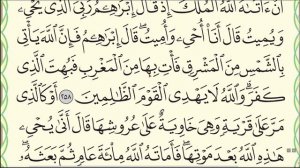 أَنْ ءَاتَىٰهُ ٱللَّهُ ٱلْمُلْكَ إِذْ قَالَ إِبْرَٰهِـۧمُ رَبِّىَ ٱلَّذِى يُحْىِۦ
وَيُمِيتُ قَالَ أَنَا۠ أُحْىِۦ وَأُمِيتُ ۖ قَالَ إِبْرَٰهِـۧمُ فَإِنَّ ٱللَّهَ يَأْتِى
بِٱلشَّمْسِ مِنَ ٱلْمَشْرِقِ فَأْتِ بِهَا مِنَ ٱلْمَغْرِبِ فَبُهِتَ ٱلَّذِى
كَفَرَ ۗ وَٱللَّهُ لَا يَهْدِى ٱلْقَوْمَ ٱلظَّٰلِمِينَ ٢٥٨ أَوْ كَٱلَّذِى
مَرَّ عَلَىٰ قَرْيَةٍ وَهِىَ خَاوِيَةٌ عَلَىٰ عُرُوشِهَا قَالَ أَنَّىٰ يُحْىِۦ
هَٰذِهِ ٱللَّهُ بَعْدَ مَوْتِهَا ۖ فَأَمَاتَهُ ٱللَّهُ مِا۟ئَةَ عَامٍ ثُمَّ بَعَثَهُۥ ۖ